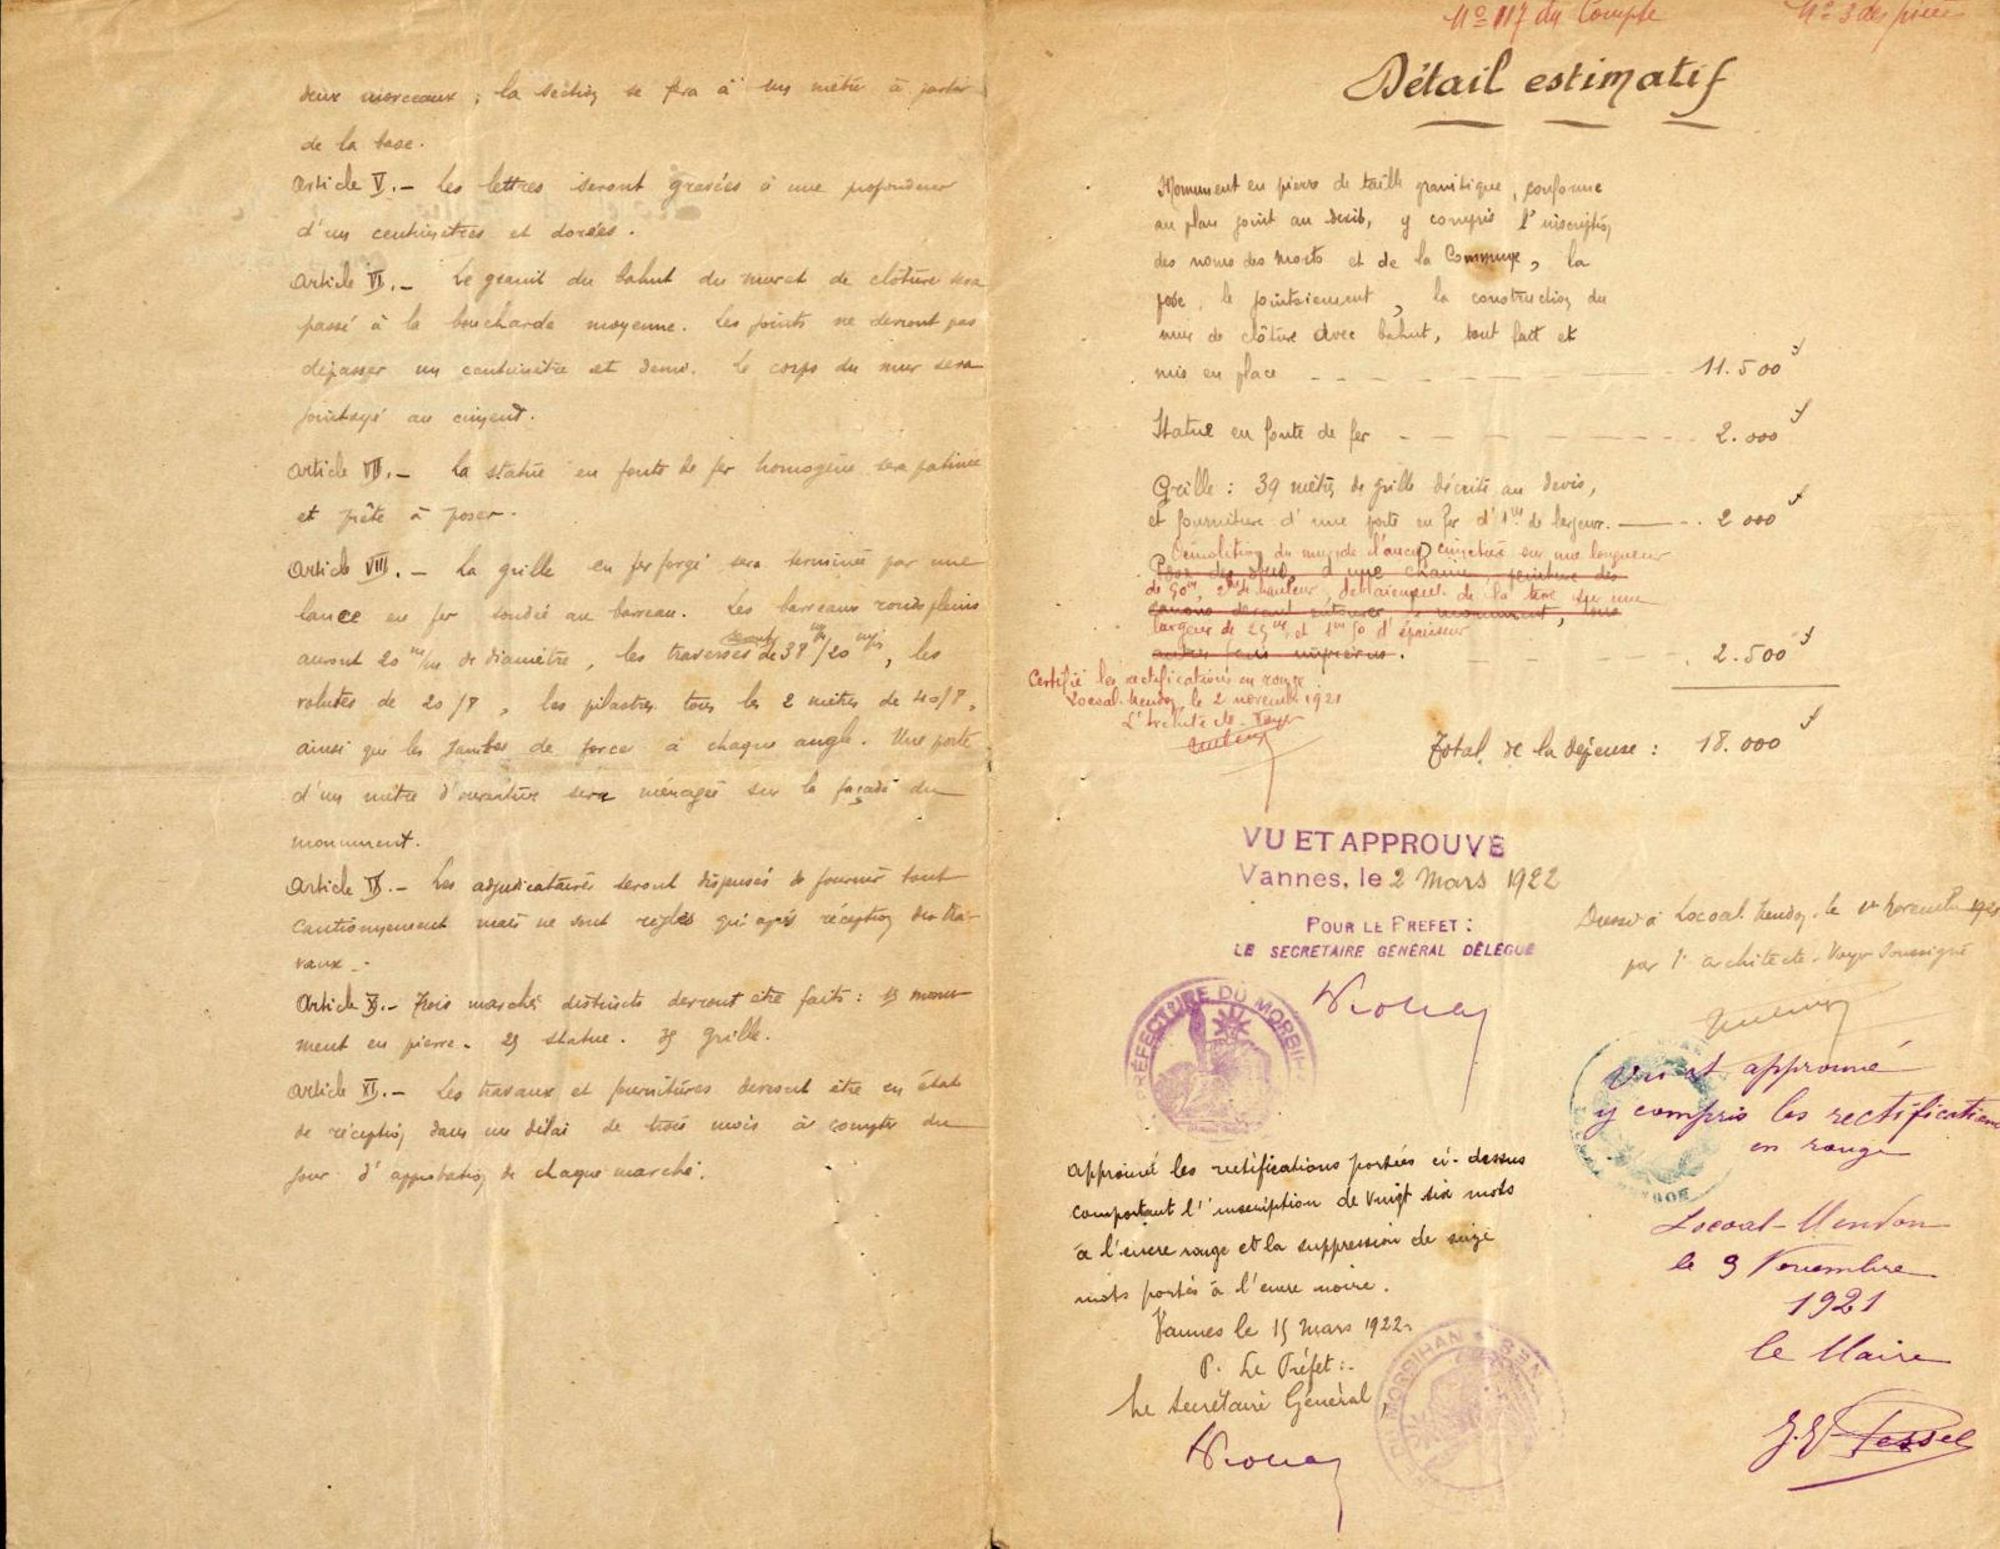 deux morceaux ; la section se fera à un mètre à partir
de la base.
Article V. – Les lettres seront gravées à une profondeur
d'un centimètres et dorées.
Article VI. – Le granit du bahut du muret de clôture sera
passé à la boucharde moyenne. Les joints ne devront pas
dépasser un centimètre et demi. Le corps du mur sera
jointoyé au ciment.
Article VII. – La statue en fonte de fer homogène sera patinée
et prête à poser.
Article VIII. – La grille en fer forgé sera terminée par une
lance en fer soudée au barreau. Les barreaux ronds pleins
auront 20 m/m de diamètre, les traverses seront de 38 m/m/20 m/m, les
volutes de 20/8, les pilastres tous les 2 mètres de 40/8,
ainsi que les jambes de force à chaque angle. Une porte
d'un mètre d'ouverture sera ménagée sur la façade du
monument.
Article IX. – Les adjudicataires seront dispensés de fournir tout
cautionnement mais ne sont réglés qu'après réception des tra-
vaux. -
Article X. – Trois marchés distincts devront être faits : 1º monu-
ment en pierre. 2º statue. 3º grille.
Article XI. – Les travaux et fournitures devront être en état
de réception dans un délai de trois mois à compter du
jour d'approbation de chaque marché.
Nº 117 du Compte Nº 3 des pièces
Détail estimatif
Monument en pierre de taille granitique, conforme
au plan joint au devis, y compris l'inscription
des noms des morts et de la Commune, la
pose, le jointoiement, la construction du
mur de clôture avec bahut, tout fait et
mis en place 11.500 f
Statue en fonte de fer 2.000 f
Grille : 39 mètres de grille décrite au devis,
et fourniture d'une porte en fer d'1m de largeur. 2 000 f
Démolition du mur de l'ancien cimetière sur une longueur
de 50m, 2m de hauteur, déblaiement de la terre sur une
largeur de 25m, et 1m50 d'épaisseur
autres frais imprévus. 2.500 f
Certifié les rectifications en rouge.
Locoal-Mendon, le 2 novembre 1921
L'Architecte-Voyer
Total de la dépense : 18.000 f
VU ET APPROUVE
Vannes, le 2 Mars 1922
POUR LE PREFET :
LE SECRETAIRE GÉNÉRAL DÉLÉGUÉ
PRÉFECTURE DU MORBIHAN
Dressé à Locoal-Mendon, le 1er Novembre 1921
par l'architecte-Voyer soussigné
Vu et approuvé
y compris les rectifications
en rouge
Locoal-Mendon
le 9 Novembre
1921
le Maire
Approuvé les rectifications portées ci-dessus
comportant l'inscription de vingt six mots
à l'encre rouge et la suppression de seize
mots portés à l'encre noire.
Vannes le 15 mars 1922.
P. Le Préfet :-
Le Secrétaire Général,
MORBIHAN